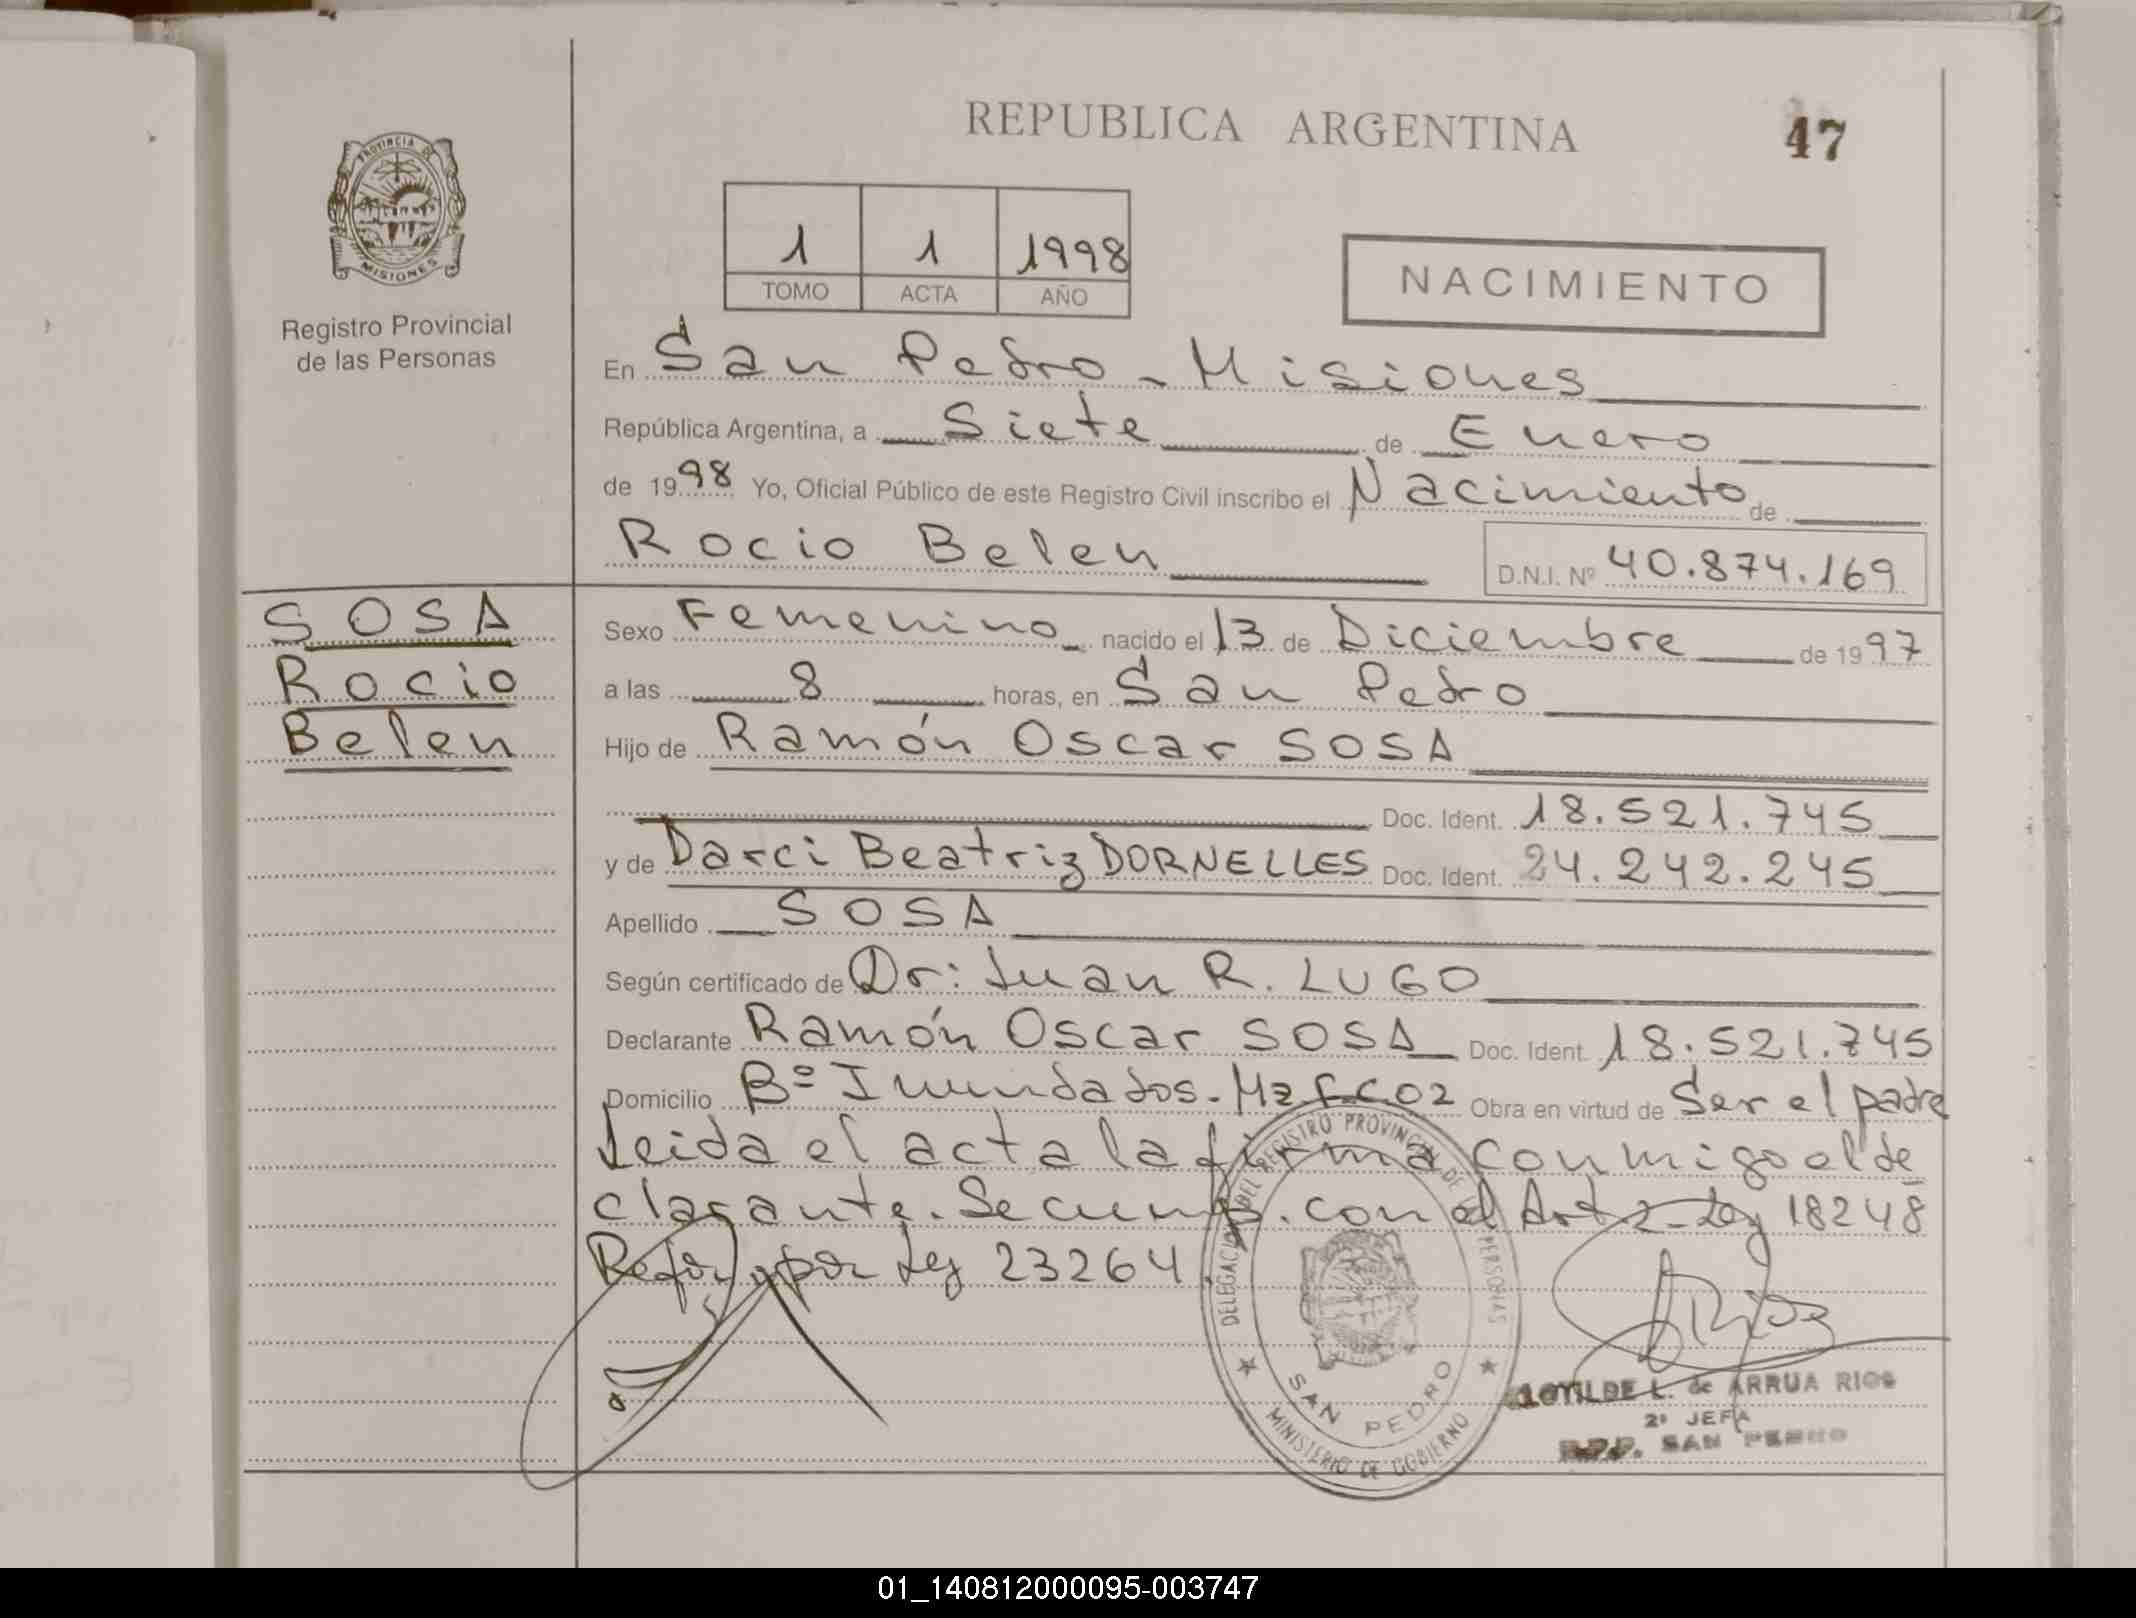 REPUBLICA ARGENTINA
47
PROVINCIA DE
MISIONES
Registro Provincial
de las Personas
1 1 1998
TOMO ACTA AÑO
NACIMIENTO
En San Pedro - Misiones
República Argentina, a Siete de Enero
de 1998 Yo, Oficial Público de este Registro Civil inscribo el Nacimiento de
Rocio Belen D.N.I. Nº 40.874.169
SOSA
Rocio
Belen
Sexo Femenino nacido el 13 de Diciembre de 1997
a las 8 horas, en San Pedro
Hijo de Ramón Oscar SOSA
Doc. Ident. 18.521.745
y de Darci Beatriz DORNELLES Doc. Ident. 24.242.245
Apellido SOSA
Según certificado de Dr: Juan R. LUGO
Declarante Ramón Oscar SOSA Doc. Ident. 18.521.745
Domicilio Bº Inundados. Mz Obra en virtud de Ser el padre
Leida el acta la firma conmigo el de
clarante. Se cump. con el Art 2 - Ley 18248
Refor. por Ley 23264.
DELEGACION DEL REGISTRO PROVINCIAL DE LAS PERSONAS
SAN PEDRO
MINISTERIO DE GOBIERNO
CLOTILDE L. de ARRUA RIOS
2º JEFA
R.P.P. SAN PEDRO
01_140812000095-003747